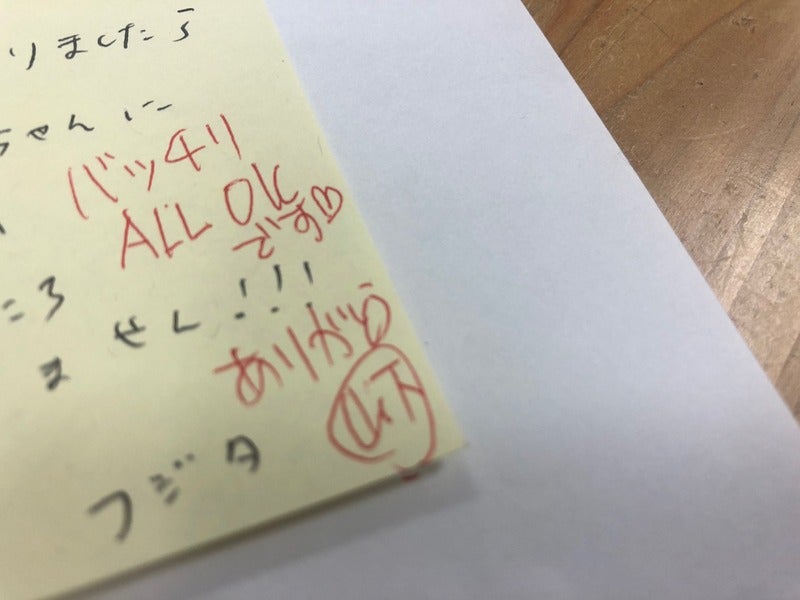 りましたら
ちゃんに
バッチリ
ALL OK
です♡
ころ
ません!!!
ありがとう
山下
フジタ